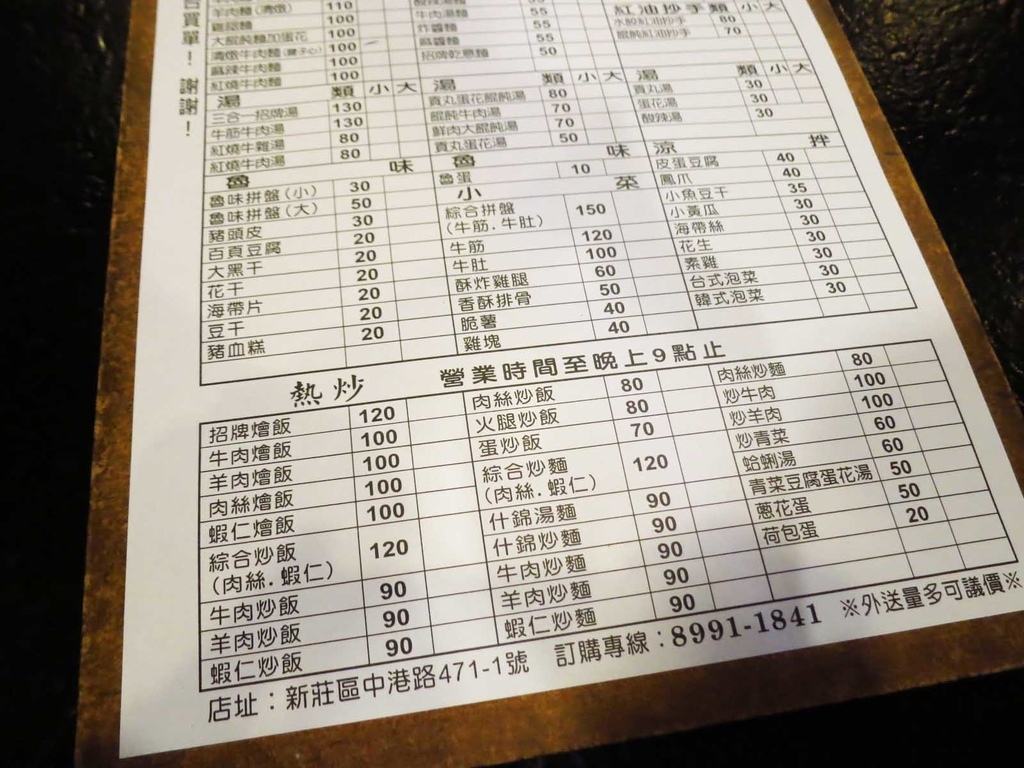 單！謝謝！
羊肉麵(清燉) 110
雞腿麵 100
大餛飩麵加蛋花 100
清燉牛肉麵(腱子心) 100
麻辣牛肉麵 100
紅燒牛肉麵 100
酸辣湯麵
牛肉湯麵 55
炸醬麵 55
麻醬麵 55
招牌乾意麵 50
紅油抄手類 小 大
水餃紅油抄手 80
餛飩紅油抄手 70
湯 類 小 大
三合一招牌湯 130
牛筋牛肉湯 130
紅燒牛雜湯 80
紅燒牛肉湯 80
湯 類 小 大
貢丸蛋花餛飩湯 80
餛飩牛肉湯 70
鮮肉大餛飩湯 70
貢丸蛋花湯 50
湯 類 小 大
貢丸湯 30
蛋花湯 30
酸辣湯 30
魯 味
魯味拼盤(小) 30
魯味拼盤(大) 50
豬頭皮 30
百頁豆腐 20
大黑干 20
花干 20
海帶片 20
豆干 20
豬血糕 20
魯 味
魯蛋 10
小 菜
綜合拼盤 150
(牛筋.牛肚)
牛筋 120
牛肚 100
酥炸雞腿 60
香酥排骨 50
脆薯 40
雞塊 40
涼 拌
皮蛋豆腐 40
鳳爪 40
小魚豆干 35
小黃瓜 30
海帶絲 30
花生 30
素雞 30
台式泡菜 30
韓式泡菜 30
熱炒 營業時間至晚上9點止
招牌燴飯 120
牛肉燴飯 100
羊肉燴飯 100
肉絲燴飯 100
蝦仁燴飯 100
綜合炒飯 120
(肉絲.蝦仁)
牛肉炒飯 90
羊肉炒飯 90
蝦仁炒飯 90
肉絲炒飯 80
火腿炒飯 80
蛋炒飯 70
綜合炒麵 120
(肉絲.蝦仁)
什錦湯麵 90
什錦炒麵 90
牛肉炒麵 90
羊肉炒麵 90
蝦仁炒麵 90
肉絲炒麵 80
炒牛肉 100
炒羊肉 100
炒青菜 60
蛤蜊湯 60
青菜豆腐蛋花湯 50
蔥花蛋 50
荷包蛋 20
店址：新莊區中港路471-1號 訂購專線：8991-1841 ※外送量多可議價※